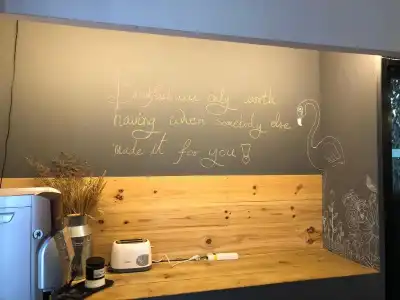 is only worth
having when somebody else
made it for you!